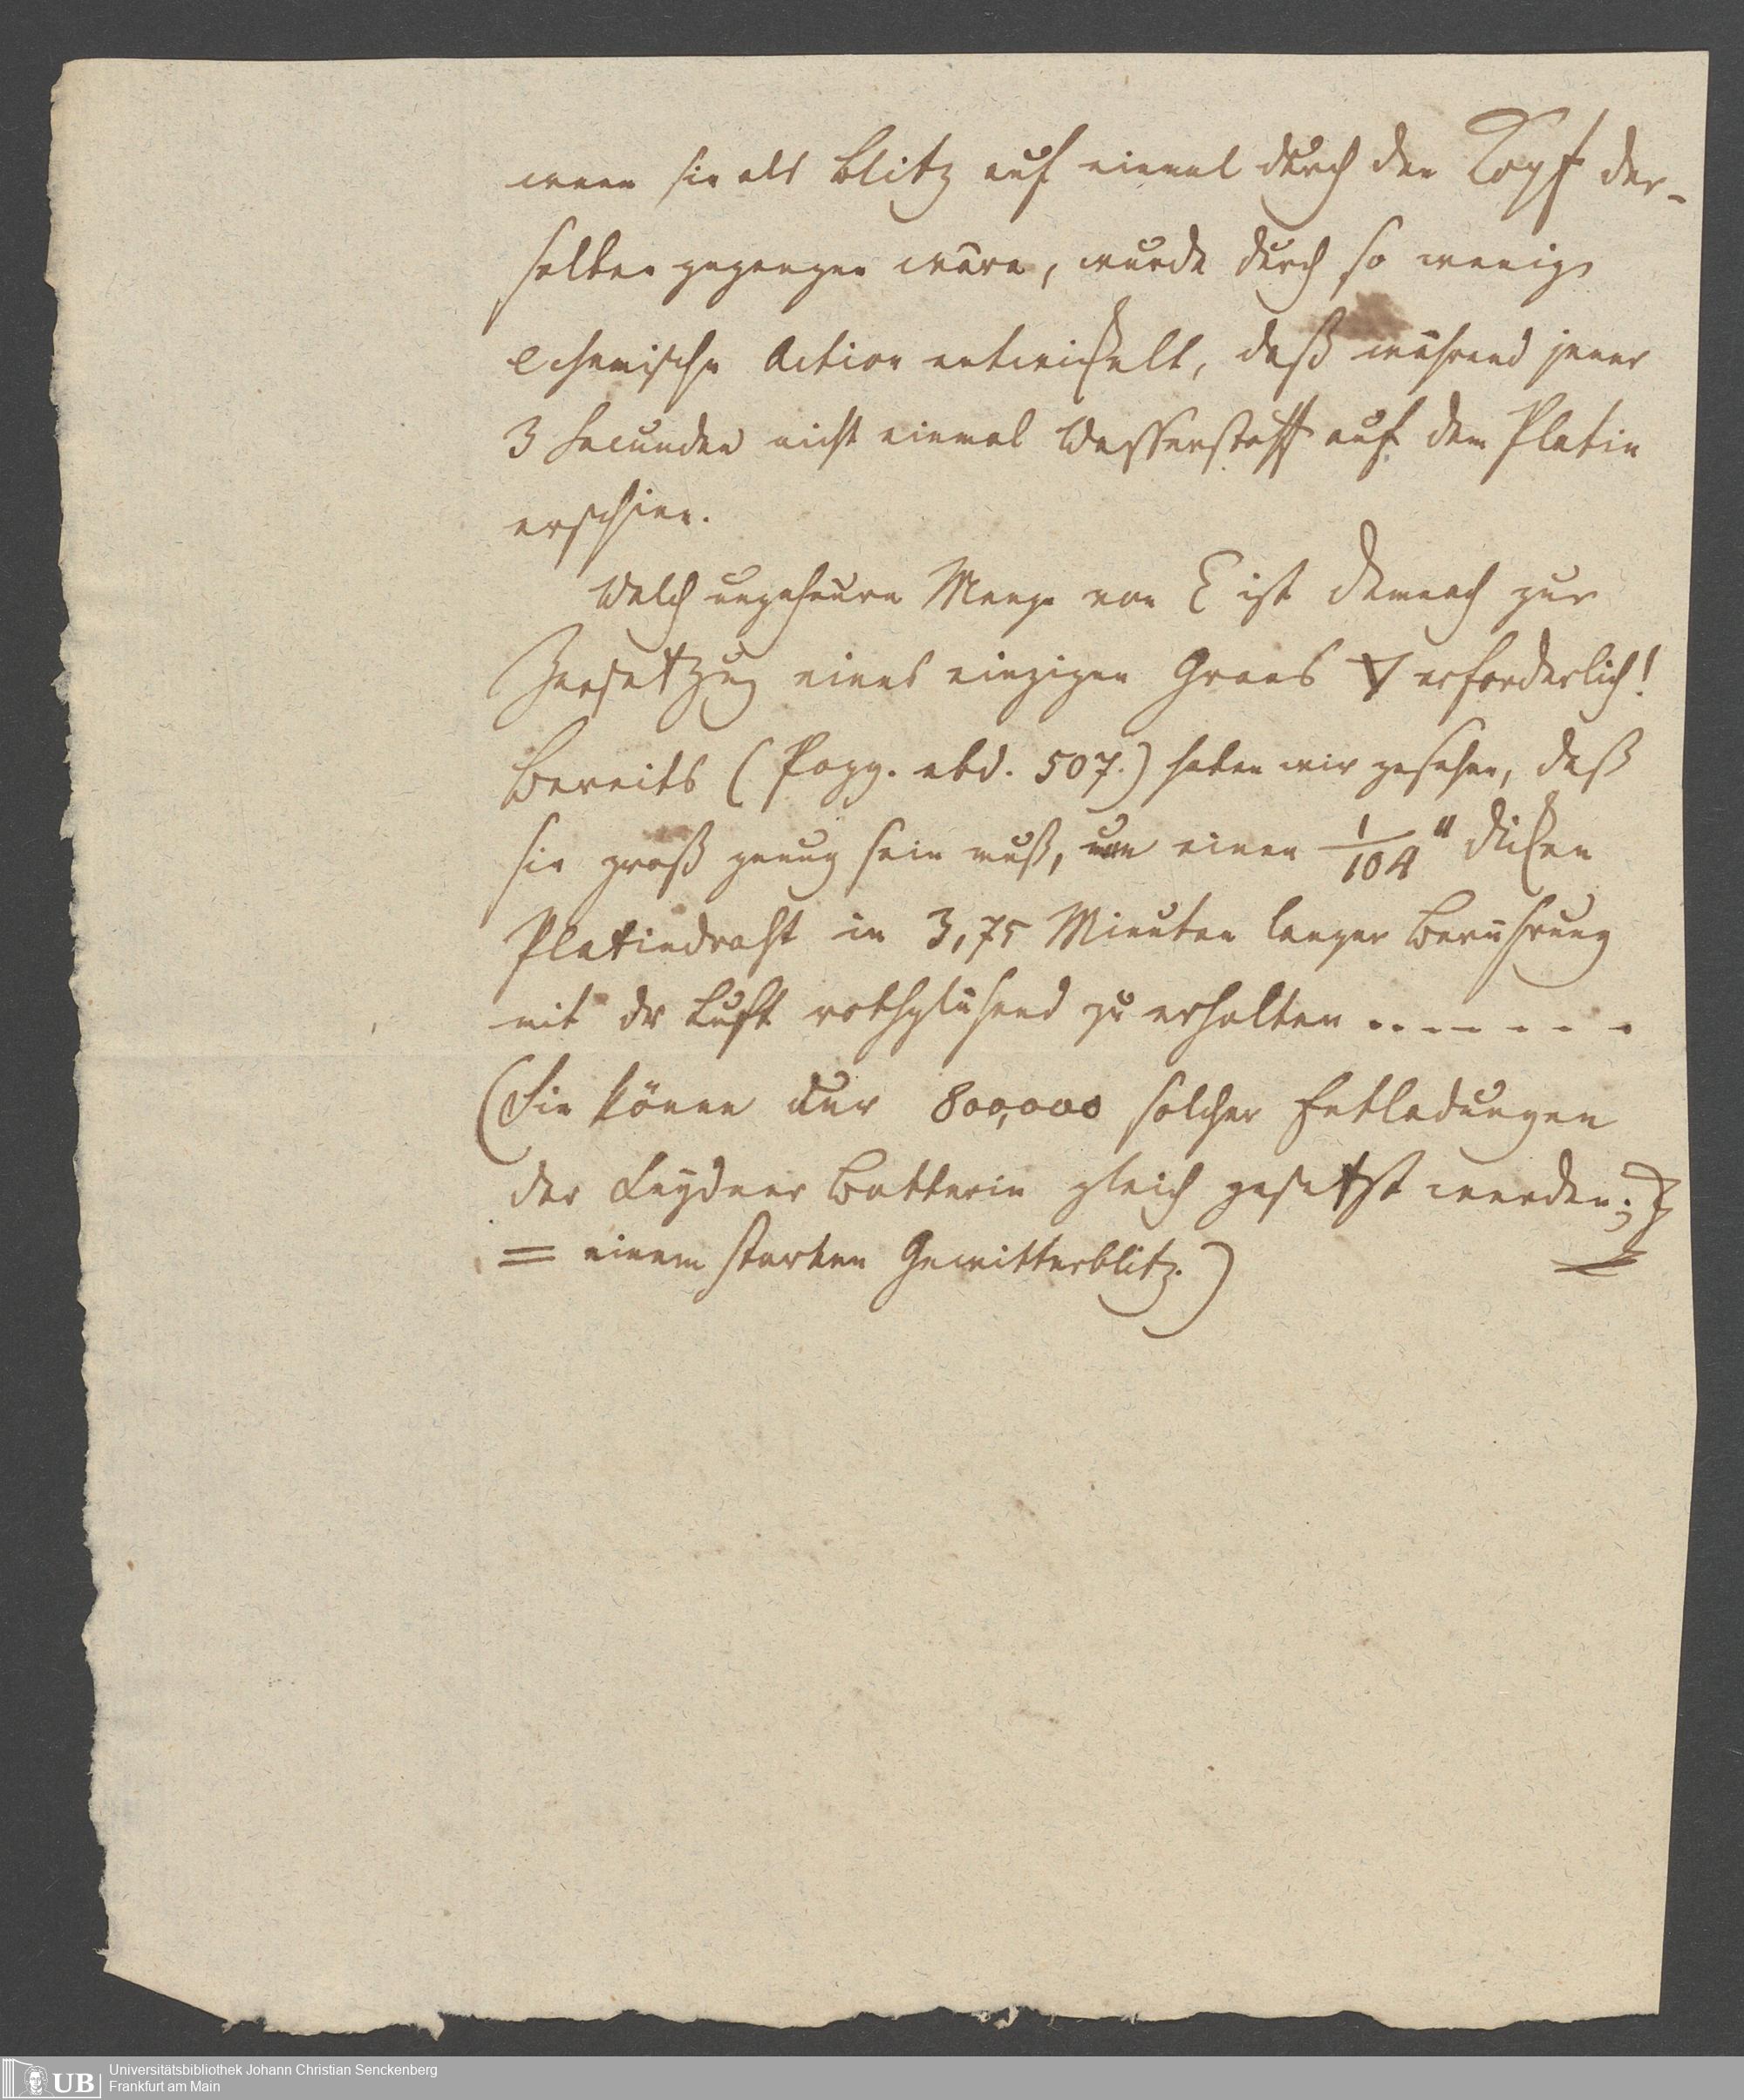 wenn sie als Blitz auf einmal durch den Kopf der-
selben gegangen wäre, wurde durch so wenig
chemische Action entwickelt, daß während jener
3 Secunden nicht einmal Wasserstoff auf dem Platin
erschien.
Welch ungeheure Menge von E ist demnach zur
Zersetzug eines einzigen Grans 🜄 erforderlich!
Bereits (Pogg. ebd. 507.) haben wir gesehen, daß
sie groß genug sein muß, um einen 1/104" dicken
Platindraht in 3,75 Minuten langer Berührung
mit der Luft rothglühend zu erhalten ........
(Sie könne nur 800,000 solcher Entladungen
der Leydner Batterie gleich gesetzt werden;
= einem starken Gewitterblitz.)
UB
Universitätsbibliothek Johann Christian Senckenberg
Frankfurt am Main